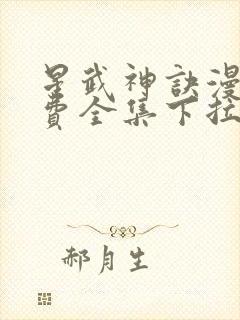 星武神訣漫
費全集下拉
郝月生